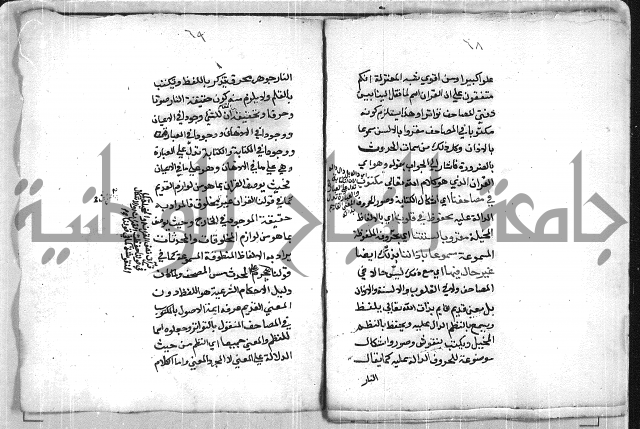 ٦٨
علوا كبيرا ومن اقوي شبه المعتزلة انكم
متفقون علي ان القران اسم لما نقل الينا بين
دفتي المصاحف تواترا وهذا يستلزم كونه
مكتوبا في المصاحف مقروا بالالسن مسموعا
بالاذان وكل ذلك من سمات الحدوث
بالضرورة فاشار الي الجواب بقوله وهو اي
القران الذي هو كلام الله تعالي مكتوب
في مصاحفنا اي باشكال الكتابة وصور الحروف
الدالة عليه محفوظ في قلوبنا اي بالالفاظ
المخيلة مقرو بالسنتنا اي بحروفه الملفوظة
المسموعة مسموع باذاننا بذلك ايضا
غير حال فيها اي مع ذلك ليس حالا في
المصاحف ولا في القلوب والالسنة والاذان
بل معني قديم قايم بذات الله تعالي يلفظ
ويسمع بالنظم الدال عليه ويحفظ بالنظم
المخيل ويكتب بنقوش وصور واشكال
موضوعة للحروف الدالة عليه كما يقال
النار
٦٩
النار جوهر محرق يذكر باللفظ ويكتب
بالقلم ولا يلزم منه كون حقيقة النار صوتا
وحرفا وتحقيقه ان للشي وجودا في الاعيان
ووجودا في الاذهان ووجودا في العبارة
ووجودا في الكتابة والكتابة تدل علي العبارة
وهي علي ما في الاذهان وهو علي ما في الاعيان
فحيث يوصف القران بما هو من لوازم القديم
كما في قولنا القران غير مخلوق فالمراد به
حقيقته الموجودة في الخارج وحيث يوصف
بما هو من لوازم المخلوقات والمحدثات
يراد به الالفاظ المنطوقة المسموعة كما في
قولنا يحرم علي المحدث مس المصحف ولما كان
دليل الاحكام الشرعية هو اللفظ دون
المعني القديم عرفه ايمة الاصول بالمكتوب
في المصاحف المنقول بالتواتر وجعلوه اسما
للنظم والمعني جميعا اي النظم من حيث
الدلالة علي المعني لا لمجرد المعني واما الكلام
جامعة النجاح الوطنية